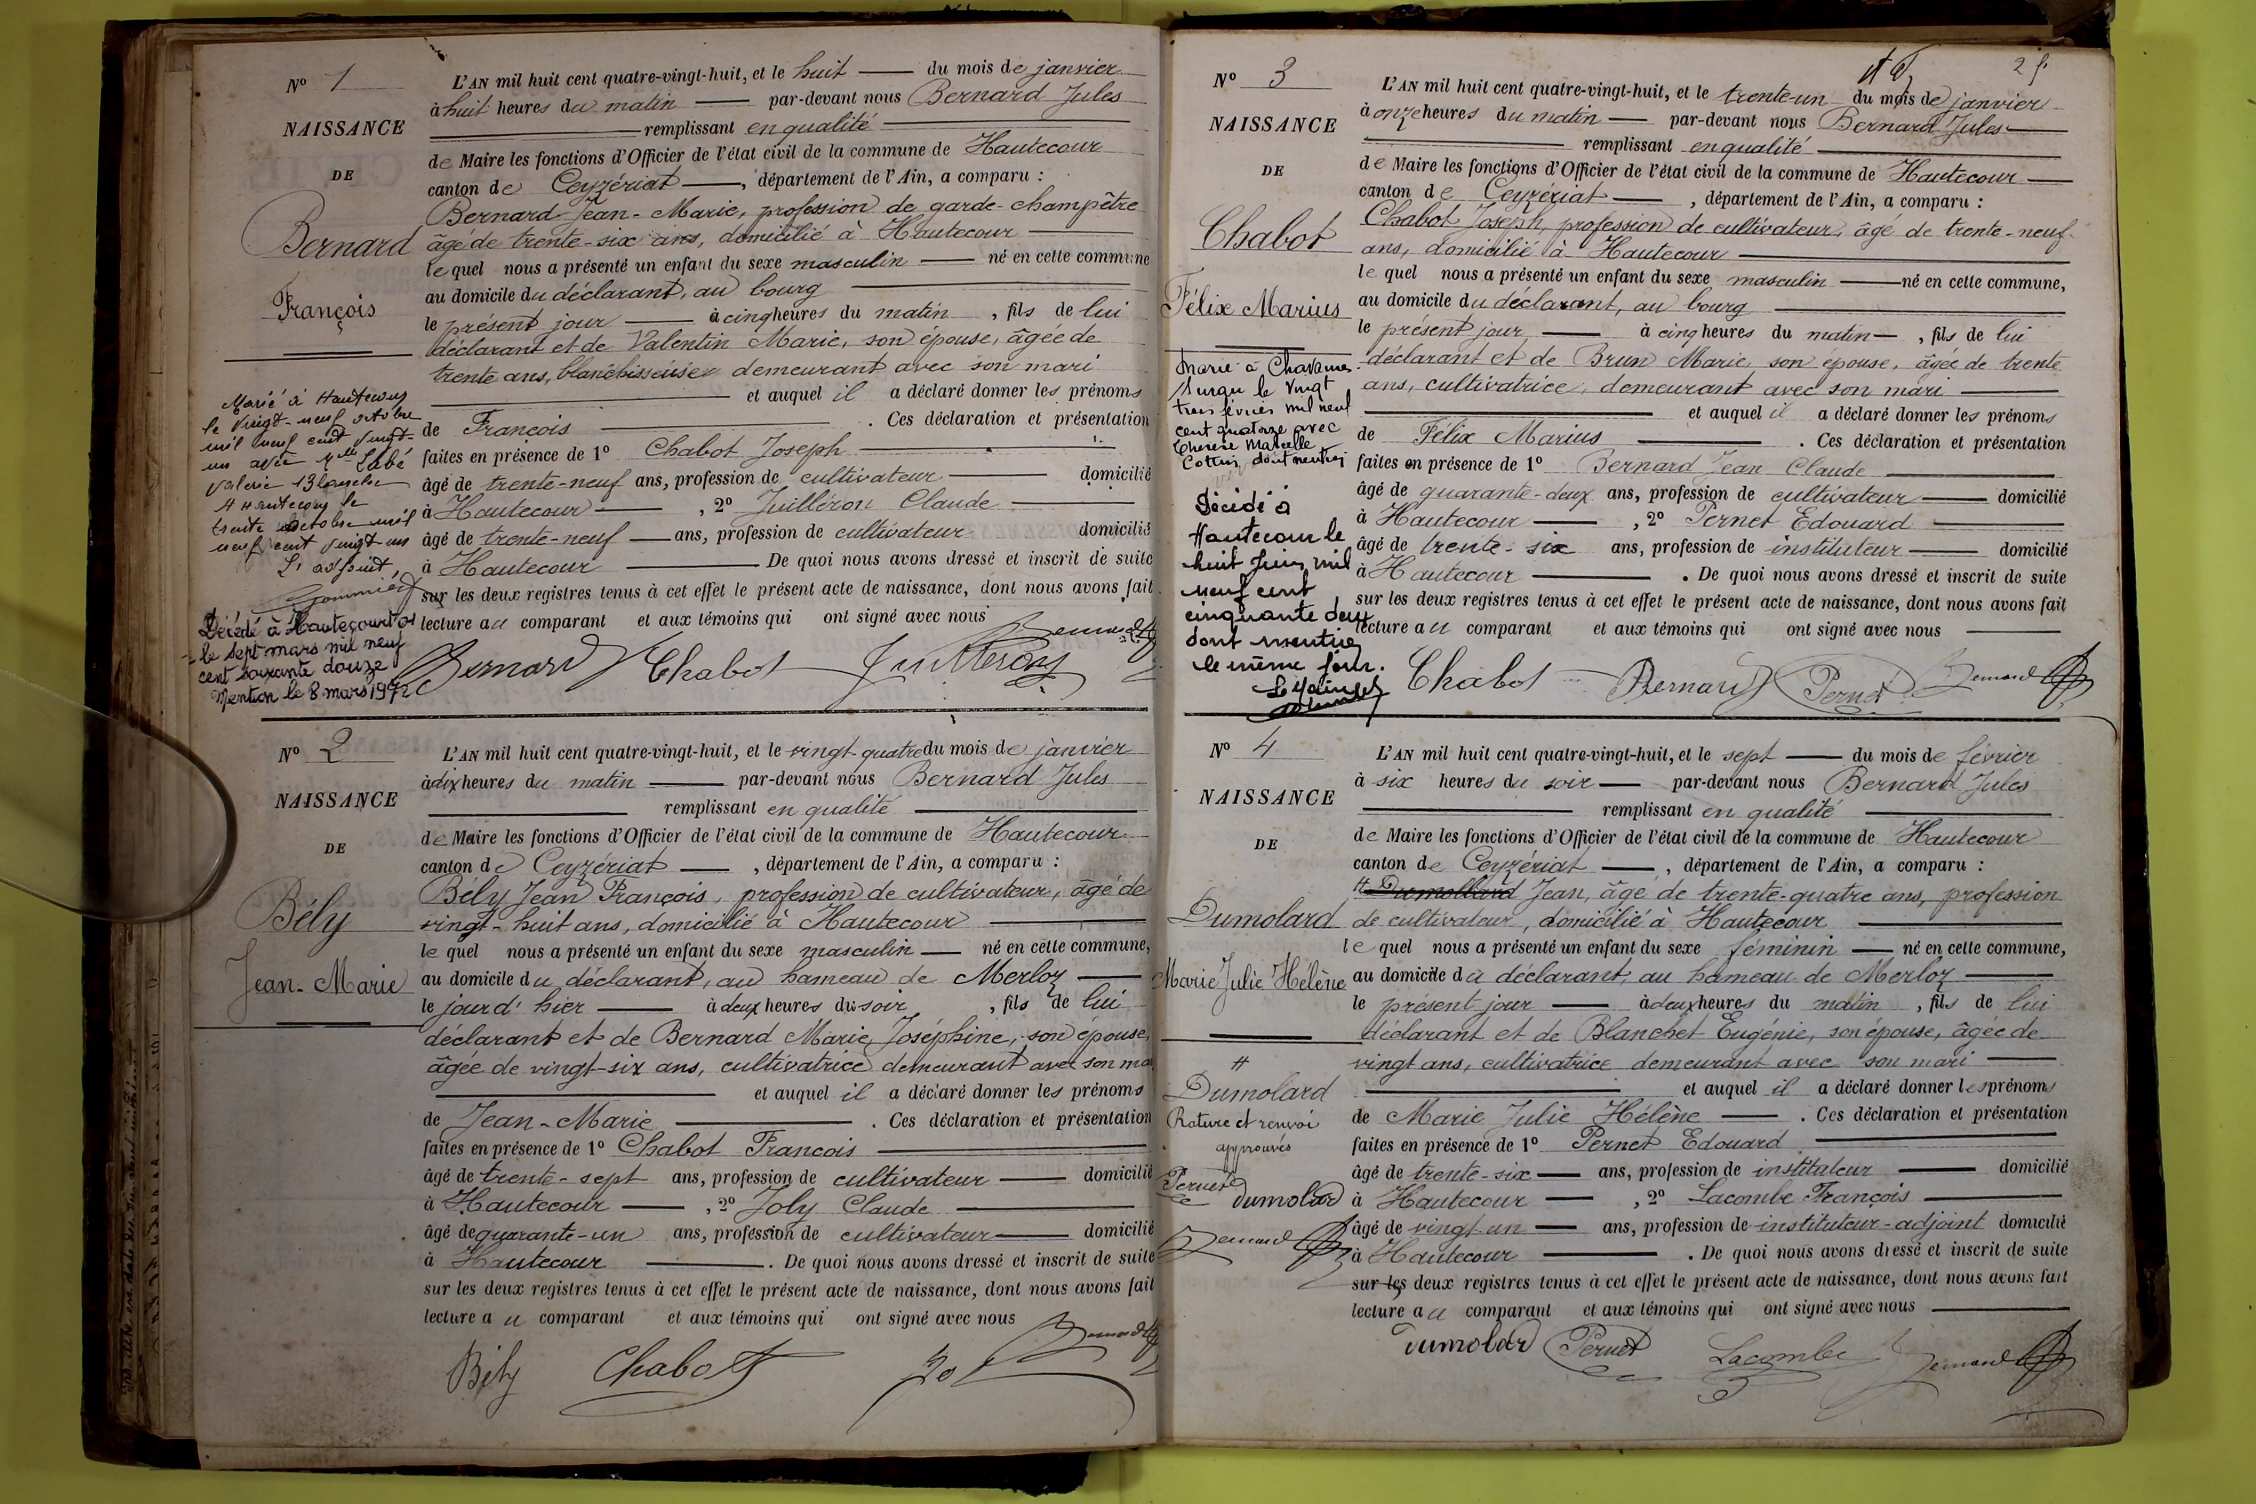 Nº 1
NAISSANCE
DE
Bernard
François
Marié à Hautecour
le vingt-neuf octobre
mil neuf cent vingt-
un avec Mlle
Valérie Blanche
Hautecour le
trente octobre mil
neuf cent vingt un
L'adjoint,
Décédé à Hautecourt
le sept mars mil neuf
cent soixante douze
Mention le 8 mars 1972
L'AN mil huit cent quatre-vingt-huit, et le huit du mois de janvier
à huit heures du matin par-devant nous Bernard Jules
remplissant en qualité
de Maire les fonctions d'Officier de l'état civil de la commune de Hautecour
canton de Ceyzériat, département de l'Ain, a comparu :
Bernard Jean-Marie, profession de garde-champêtre
âgé de trente-six ans, domicilié à Hautecour
le quel nous a présenté un enfant du sexe masculin né en cette commune
au domicile du déclarant, au bourg
le présent jour à cinq heures du matin, fils de lui
déclarant et de Valentin Marie, son épouse, âgée de
trente ans, blanchisseuse demeurant avec son mari
et auquel il a déclaré donner les prénoms
de François. Ces déclaration et présentation
faites en présence de 1º Chabot Joseph
âgé de trente-neuf ans, profession de cultivateur domicilié
à Hautecour, 2º Juilléron Claude
âgé de trente-neuf ans, profession de cultivateur domicilié
à Hautecour De quoi nous avons dressé et inscrit de suite
sur les deux registres tenus à cet effet le présent acte de naissance, dont nous avons fait
lecture au comparant et aux témoins qui ont signé avec nous
Bernard Chabot Juilleron Bernard
Nº 2
NAISSANCE
DE
Bély
Jean-Marie
L'AN mil huit cent quatre-vingt-huit, et le vingt-quatre du mois de janvier
à dix heures du matin par-devant nous Bernard Jules
remplissant en qualité
de Maire les fonctions d'Officier de l'état civil de la commune de Hautecour
canton de Ceyzériat, département de l'Ain, a comparu :
Bély Jean François, profession de cultivateur, âgé de
vingt-huit ans, domicilié à Hautecour
le quel nous a présenté un enfant du sexe masculin né en cette commune,
au domicile du déclarant, au hameau de Merloz
le jour d'hier à deux heures du soir, fils de lui
déclarant et de Bernard Marie Joséphine, son épouse,
âgée de vingt-six ans, cultivatrice demeurant avec son mari
et auquel il a déclaré donner les prénoms
de Jean-Marie. Ces déclaration et présentation
faites en présence de 1º Chabot François
âgé de trente-sept ans, profession de cultivateur domicilié
à Hautecour, 2º Joly Claude
âgé de quarante-un ans, profession de cultivateur domicilié
à Hautecour. De quoi nous avons dressé et inscrit de suite
sur les deux registres tenus à cet effet le présent acte de naissance, dont nous avons fait
lecture au comparant et aux témoins qui ont signé avec nous
Bély Chabot Bernard
Nº 3
NAISSANCE
DE
Chabot
Félix Marius
Marié à Chavannes
Suran le vingt
trois février mil neuf
cent quatorze avec
Thérèse Marcelle
Cottin, dont mention
Décédé à
Hautecour le
huit Juin mil
neuf cent
cinquante deux
dont mention
le même jour.
Le Maire
L'AN mil huit cent quatre-vingt-huit, et le trente-un du mois de janvier
à onze heures du matin par-devant nous Bernard Jules
remplissant en qualité
de Maire les fonctions d'Officier de l'état civil de la commune de Hautecour
canton de Ceyzériat, département de l'Ain, a comparu :
Chabot Joseph, profession de cultivateur, âgé de trente-neuf
ans, domicilié à Hautecour
le quel nous a présenté un enfant du sexe masculin né en cette commune,
au domicile du déclarant, au bourg
le présent jour à cinq heures du matin, fils de lui
déclarant et de Brun Marie, son épouse, âgée de trente
ans, cultivatrice, demeurant avec son mari
et auquel il a déclaré donner les prénoms
de Félix Marius. Ces déclaration et présentation
faites en présence de 1º Bernard Jean Claude
âgé de quarante-deux ans, profession de cultivateur domicilié
à Hautecour, 2º Pernet Edouard
âgé de trente-six ans, profession de instituteur domicilié
à Hautecour. De quoi nous avons dressé et inscrit de suite
sur les deux registres tenus à cet effet le présent acte de naissance, dont nous avons fait
lecture au comparant et aux témoins qui ont signé avec nous
Chabot Bernard Pernet Bernard
Nº 4
NAISSANCE
DE
Dumolard
Marie Julie Hélène
#
Dumolard
Rature et renvoi
approuvés
Pernet
dumolard
Bernard
L'AN mil huit cent quatre-vingt-huit, et le sept du mois de février
à six heures du soir par-devant nous Bernard Jules
remplissant en qualité
de Maire les fonctions d'Officier de l'état civil de la commune de Hautecour
canton de Ceyzériat, département de l'Ain, a comparu :
# Dumollard Jean, âgé de trente-quatre ans, profession
de cultivateur, domicilié à Hautecour
le quel nous a présenté un enfant du sexe féminin né en cette commune,
au domicile du déclarant, au hameau de Merloz
le présent jour à deux heures du matin, fils de lui
déclarant et de Blanchet Eugénie, son épouse, âgée de
vingt ans, cultivatrice demeurant avec son mari
et auquel il a déclaré donner les prénoms
de Marie Julie Hélène. Ces déclaration et présentation
faites en présence de 1º Pernet Edouard
âgé de trente-six ans, profession de instituteur domicilié
à Hautecour, 2º Lacombe François
âgé de vingt-un ans, profession de instituteur-adjoint domicilié
à Hautecour. De quoi nous avons dressé et inscrit de suite
sur les deux registres tenus à cet effet le présent acte de naissance, dont nous avons fait
lecture au comparant et aux témoins qui ont signé avec nous
dumolard Pernet Lacombe Bernard